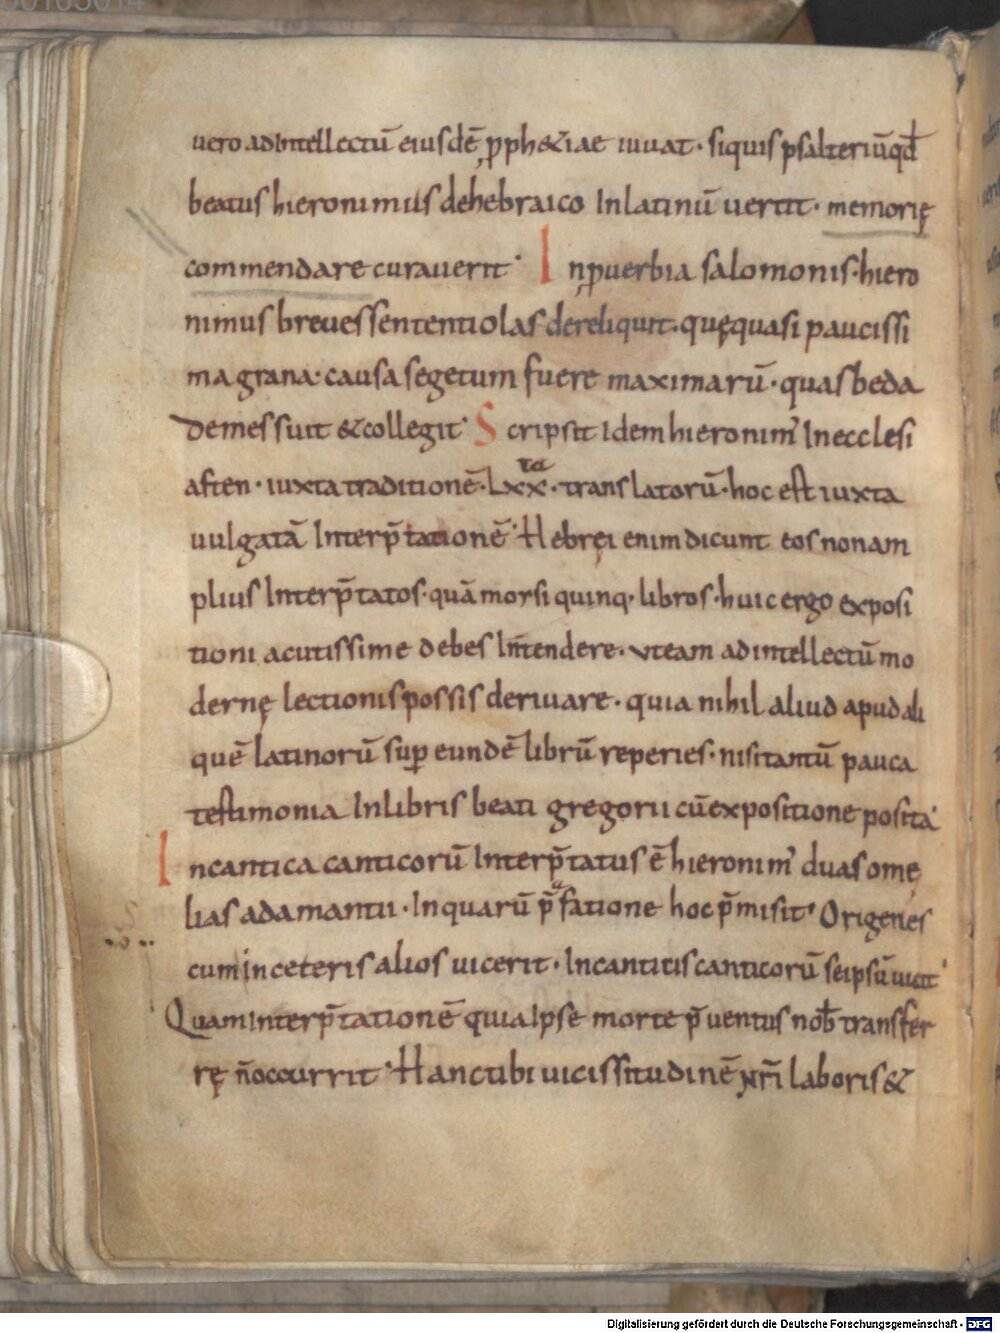 00103014
uero ad intellectū eiusdē ꝓph&iae iuuat· siquis psalteriū qđ
beatus hieronimus dehebraico Inlatinū uertit· memorię
commendare curauerit· Inꝓuerbia salomonis· hiero
nimus breues sententiolas dereliquit· quę quasi paucissi
ma grana· causa segetum fuere maximarū· quas beda
demessuit &collegit· Scripsit idem hieronim' Inecclesi
asten· iuxta traditionē· Lxx ta· translatorū· hoc est iuxta
uulgatā Interp̄tationē· Hebręi enim dicunt eos non am
plius Interp̄tatos· quā moysi quinq· libros· huic ergo exposi
tioni acutissime debes Int̄endere· ut eam ad intellectū mo
dernę lectionis possis deriuare· quia nihil aliud apud ali
quē latinorū suꝑ eundē librū reperies· nisi tantū pauca
testimonia In libris beati gregorii cū expositione posita·
Incantica canticorū Interp̄tatus ē hieronim' duas ome
lias adamantii· Inquarū p̄fatione hoc p̄misit· Origenes
cum inceteris alios uicerit· Incanticis canticorū seipsū uicit·
Quam interp̄tationē quia Ipse morte p̄uentus nob̄ transfer
rę n̄ occurrit· Hanc tibi uicissitudinē nr̄i laboris &
Digitalisierung gefördert durch die Deutsche Forschungsgemeinschaft - DFG